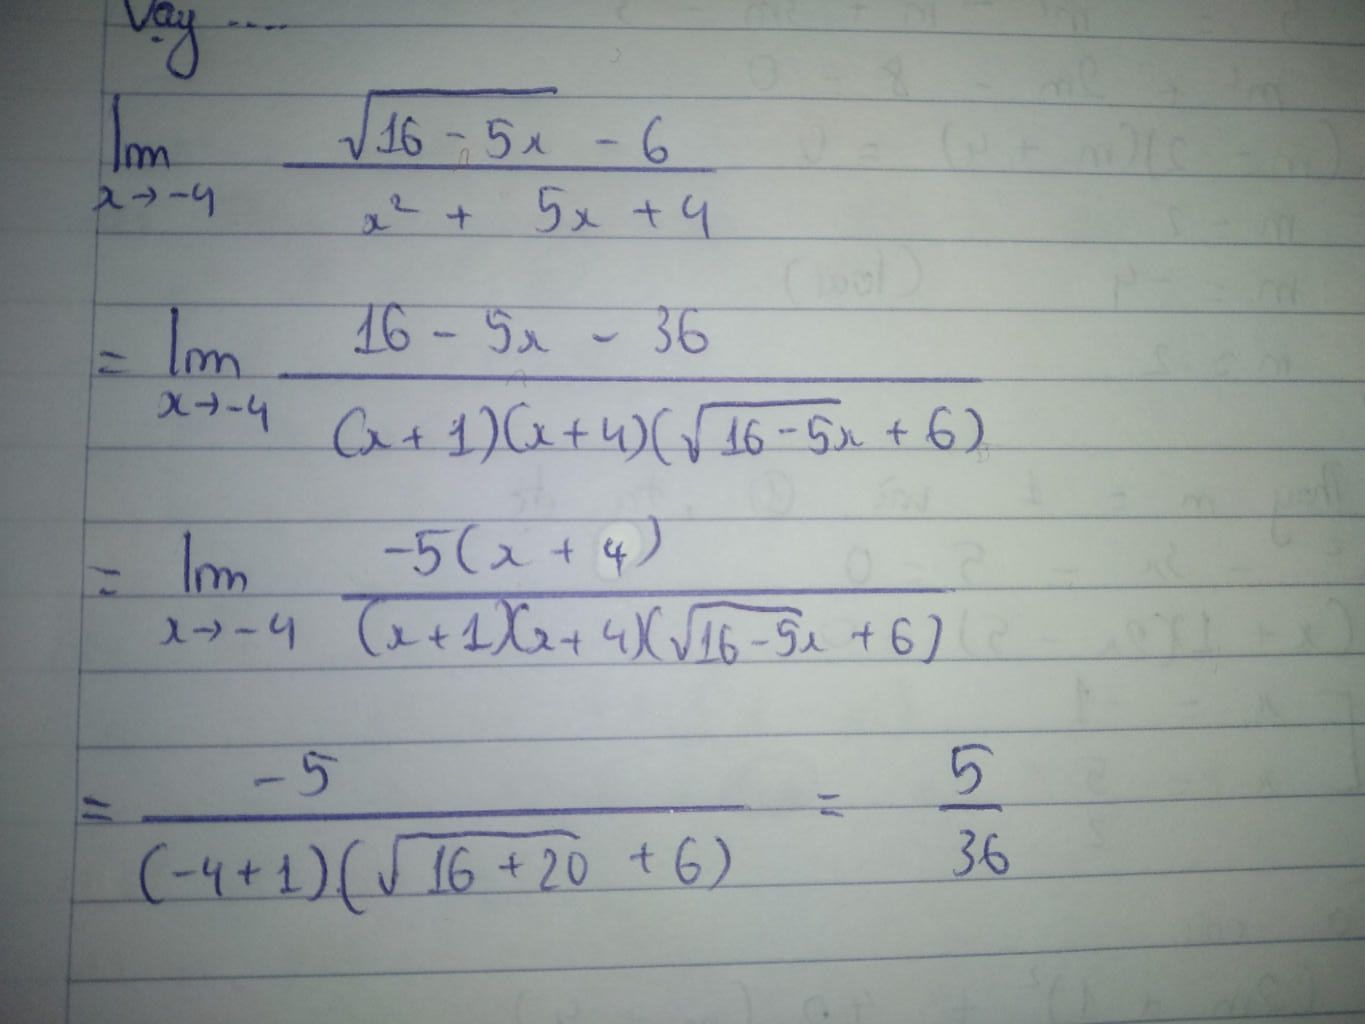 Vậy ....
lim x→-4 (√(16 - 5x) - 6) / (x² + 5x + 4)
= lim x→-4 (16 - 5x - 36) / ((x + 1)(x + 4)(√(16 - 5x) + 6))
= lim x→-4 (-5(x + 4)) / ((x + 1)(x + 4)(√(16 - 5x) + 6))
= (-5) / ((-4 + 1)(√(16 + 20) + 6)) = 5/36